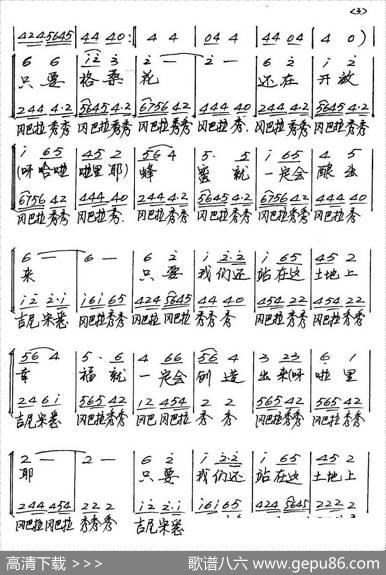 <3>
4245645 | 44 40: | 4 4 | 04 4 | 44 04 | 4 0)
6 6 | i2 3 | 2 — | 2 — | 6 2 | i 2
只要 格桑 花 还在 开放
244 4·2 | 5645 4·2 | 6756 42 | 444 40 | 244 4·2 | 5645 4·2
冈巴拉秀秀 冈巴拉秀秀 冈巴拉秀秀 冈巴拉秀 冈巴拉秀秀 冈巴拉秀秀
i 65 | 45 2 | 56 4 | 5· 5 | i 65 | 4 5
(呀哈啦 啦里耶) 蜂 蜜就 一定会 酿出
6756 42 | 444 40 | 244 4·2 | 5645 4·2 | 6756 42 | 444 40
冈巴拉秀秀 冈巴拉秀 冈巴拉秀秀 冈巴拉秀秀 冈巴拉秀秀 冈巴拉秀
6 — | 6 — | 6 2 | i 2·2 | i 65 | 45 2
来 只要 我们还 站在这 土地上
i2 2·i | i6i 65 | 424 5645 | 44 40 | 454 22 | 454 22
吉尼宋悉 冈巴拉秀秀 冈巴拉 冈巴拉 秀秀 冈巴拉秀秀 冈巴拉秀秀
56 4 | 5· 6 | 4 66 | 56 4 | 3 23 | 6 1
幸 福就 一定会 创造 出来(呀 啦里
246i | 565 42 | 12 454 | 2 2 | 565 42 | 565 42
吉尼宋悉 冈巴拉秀秀 冈巴 冈巴拉 秀秀 冈巴拉秀秀 冈巴拉秀秀
2 — | 2 — | 6 2 | i 2·2 | i 65 | 45 2
耶 只要 我们还 站在这 土地上
244 454 | 222 2 | i2 2·i | i6i65 | 424 5645 | 222 2
冈巴拉冈巴拉 秀秀秀 吉尼宋悉
高清下载 >>> 歌谱八六 www.gepu86.com